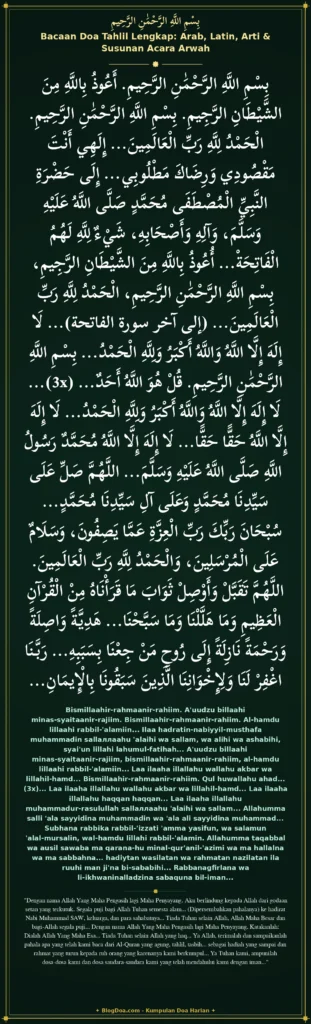 بِسْمِ اللَّهِ الرَّحْمَٰنِ الرَّحِيْمِ
Bacaan Doa Tahlil Lengkap: Arab, Latin, Arti &
Susunan Acara Arwah
بِسْمِ اللَّهِ الرَّحْمَٰنِ الرَّحِيمِ. أَعُوذُ بِاللَّهِ مِنَ
الشَّيْطَانِ الرَّجِيمِ. بِسْمِ اللَّهِ الرَّحْمَٰنِ الرَّحِيمِ.
الْحَمْدُ لِلَّهِ رَبِّ الْعَالَمِينَ... إِلَهِي أَنْتَ
مَقْصُودِي وَرِضَاكَ مَطْلُوبِي... إِلَى حَضْرَةِ
النَّبِيِّ الْمُصْطَفَى مُحَمَّدٍ صَلَّى اللَّهُ عَلَيْهِ
وَسَلَّمَ، وَآلِهِ وَأَصْحَابِهِ، شَيْءٌ لِلَّهِ لَهُمُ
الْفَاتِحَةَ... أَعُوذُ بِاللَّهِ مِنَ الشَّيْطَانِ الرَّجِيمِ،
بِسْمِ اللَّهِ الرَّحْمَٰنِ الرَّحِيمِ، الْحَمْدُ لِلَّهِ رَبِّ
الْعَالَمِينَ... (إلى آخر سورة الفاتحة)... لَا
إِلَهَ إِلَّا اللَّهُ وَاللَّهُ أَكْبَرُ وَلِلَّهِ الْحَمْدُ... بِسْمِ اللَّهِ
الرَّحْمَٰنِ الرَّحِيمِ. قُلْ هُوَ اللَّهُ أَحَدٌ... (3x)...
لَا إِلَهَ إِلَّا اللَّهُ وَاللَّهُ أَكْبَرُ وَلِلَّهِ الْحَمْدُ... لَا إِلَهَ
إِلَّا اللَّهُ حَقًّا حَقًّا... لَا إِلَهَ إِلَّا اللَّهُ مُحَمَّدٌ رَسُولُ
اللَّهِ صَلَّى اللَّهُ عَلَيْهِ وَسَلَّمَ... اللَّهُمَّ صَلِّ عَلَى
سَيِّدِنَا مُحَمَّدٍ وَعَلَى آلِ سَيِّدِنَا مُحَمَّدٍ...
سُبْحَانَ رَبِّكَ رَبِّ الْعِزَّةِ عَمَّا يَصِفُونَ، وَسَلَامٌ
عَلَى الْمُرْسَلِينَ، وَالْحَمْدُ لِلَّهِ رَبِّ الْعَالَمِينَ.
اللَّهُمَّ تَقَبَّلْ وَأَوْصِلْ ثَوَابَ مَا قَرَأْنَاهُ مِنْ الْقُرْآنِ
الْعَظِيمِ وَمَا هَلَّلْنَا وَمَا سَبَّحْنَا... هَدِيَّةً وَاصِلَةً
وَرَحْمَةً نَازِلَةً إِلَى رُوحِ مَنْ جِعْنَا بِسَبَبِهِ... رَبَّنَا
اغْفِرْ لَنَا وَلِإِخْوَانِنَا الَّذِينَ سَبَقُونَا بِالْإِيمَانِ...
Bismillaahir-rahmaanir-rahiim. A'uudzu billaahi
minas-syaitaanir-rajiim. Bismillaahir-rahmaanir-rahiim. Al-hamdu
lillaahi rabbil-'alamiin... Ilaa hadratin-nabiyyil-musthafa
muhammadin sallallaahu 'alaihi wa sallam, wa alihi wa ashabihi,
syai'un lillahi lahumul-fatihah... A'uudzu billaahi
minas-syaitaanir-rajiim, bismillaahir-rahmaanir-rahiim, al-hamdu
lillaahi rabbil-'alamiin... Laa ilaaha illallahu wallahu akbar wa
lillahil-hamd... Bismillaahir-rahmaanir-rahiim. Qul huwallahu ahad...
(3x)... Laa ilaaha illallahu wallahu akbar wa lillahil-hamd... Laa ilaaha
illallahu haqqan haqqan... Laa ilaaha illallahu
muhammadur-rasulullah sallallaahu 'alaihi wa sallam... Allahumma
salli 'ala sayyidina muhammadin wa 'ala ali sayyidina muhammad...
Subhana rabbika rabbil-'izzati 'amma yasifun, wa salamun
'alal-mursalin, wal-hamdu lillahi rabbil-'alamin. Allahumma taqabbal
wa ausil sawaba ma qarana-hu minal-qur'anil-'azimi wa ma hallalna
wa ma sabbahna... hadiytan wasilatan wa rahmatan nazilatan ila
ruuhi man ji'na bi-sababihi... Rabbanagfirlana wa
li-ikhwaninalladzina sabaquna bil-iman...
"Dengan nama Allah Yang Maha Pengasih lagi Maha Penyayang. Aku berlindung kepada Allah dari godaan
setan yang terkutuk. Segala puji bagi Allah Tuhan semesta alam... (Dipersembahkan pahalanya) ke hadirat
Nabi Muhammad SAW, keluarga, dan para sahabatnya... Tiada Tuhan selain Allah, Allah Maha Besar dan
bagi-Allah segala puji... Dengan nama Allah Yang Maha Pengasih lagi Maha Penyayang. Katakanlah:
Dialah Allah Yang Maha Esa... Tiada Tuhan selain Allah yang haq... Ya Allah, terimalah dan sampaikanlah
pahala apa yang telah kami baca dari Al-Quran yang agung, tahlil, tasbih... sebagai hadiah yang sampai dan
rahmat yang turun kepada ruh orang yang karenanya kami berkumpul... Ya Tuhan kami, ampunilah
dosa-dosa kami dan dosa saudara-saudara kami yang telah mendahului kami dengan iman..."
• BlogDoa.com - Kumpulan Doa Harian •